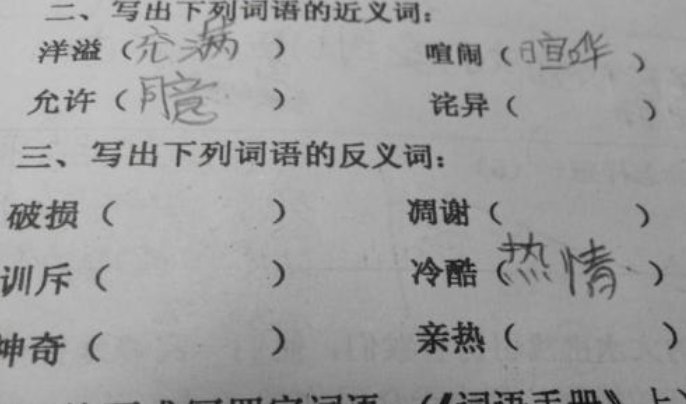 二、写出下列词语的近义词：
洋溢（充满） 喧闹（喧哗）
允许（同意） 诧异（ ）
三、写出下列词语的反义词：
破损（ ） 凋谢（ ）
训斥（ ） 冷酷（热情）
神奇（ ） 亲热（ ）
写四字词语（《词语手册》上）